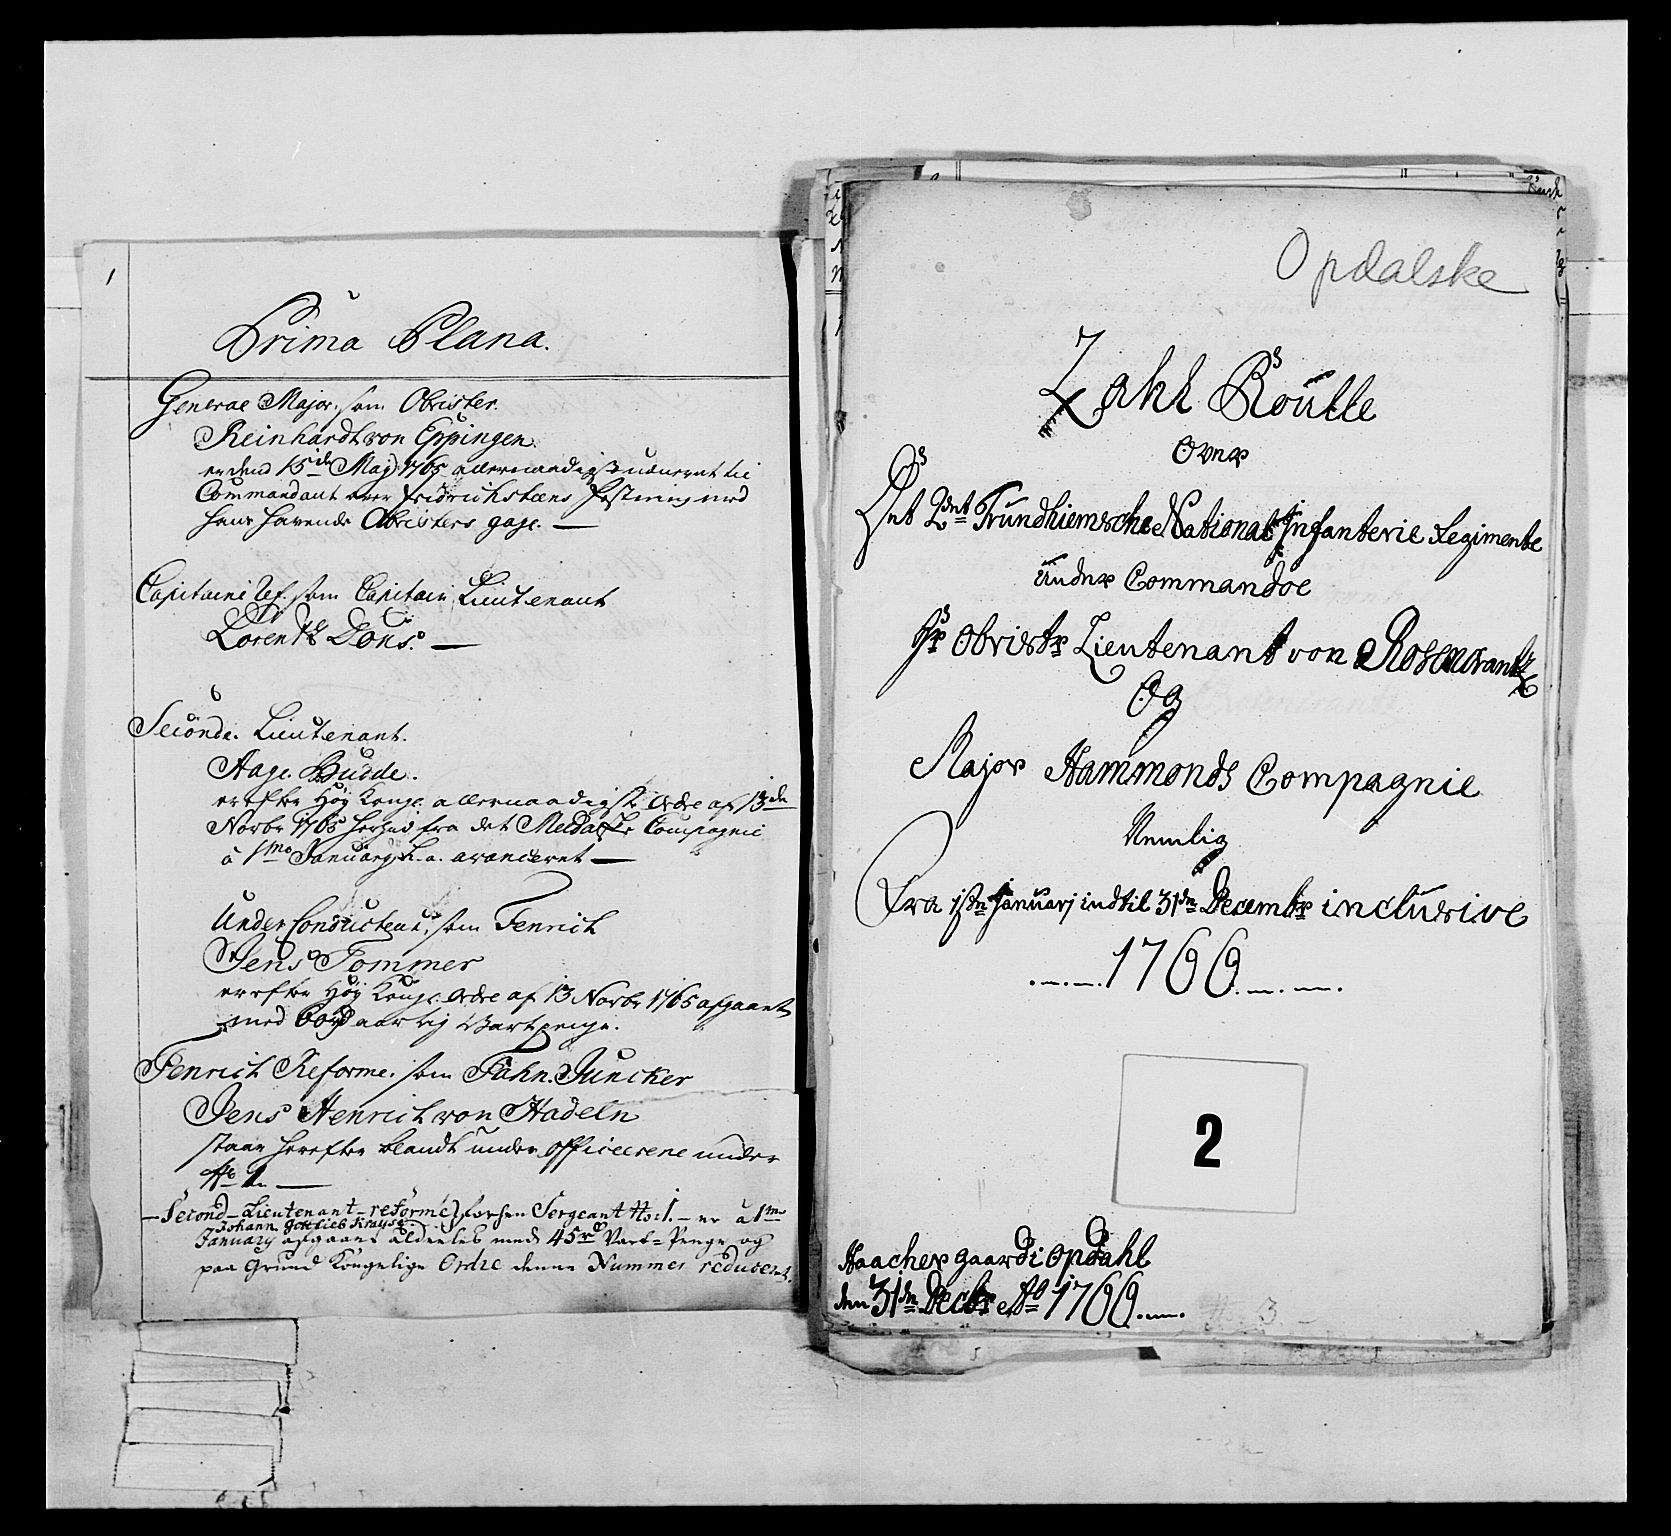 1
Prima Plana.
General Major, som Obrister.
Reinhardt von Eppingen.
er dend 15de Maj 1765 allernaadigst udnevnt til
Commandant over Fridrichstæns Festning med
hans havende Obristers gage. —
Capitaine Ref. som Capitain Lieutenant
Lorentz Dons. —
Seconde. Lieutenant.
Aage. Budde.
er efter Høy Kongl. allernaadigste Ordre af 13de
Novbr 1765 herhid fra det Meldalske Compagnie
à 1mo January h. a. avanceret —
Under Conducteur, som Fenrich
Jens Tommer
er efter Høy Kongl. Ordre af 13 Novbr 1765 afgaaet
med 60rd aarlig Vartpenge.
Fenrich Reforme. som Fahn. Juncker
Jens Henrich von Hadeln
staar herefter blandt under officeerene under
No 1. —
— Second-Lieutenant-reformé, forhen Sergeant No: 1. — er à 1mo
Johann Gottlieb Krause
January afgaaet aldeeles med 45rd Vart-Penge og
paa Grund Kongelige Ordre denne Nummer reduceret.
Opdalske
Zahl Roulle
Over
Det 2det Trundhiemsche National Infanterie Regimente
under Commandoe
Hr Obristr Lieutenant von Rosencrantz
Og
Major Hammonds Compagnie
Nemlig
Fra 1ste Januarj indtil 31de Decembr inclusive
1766
2
Aacher gaard i Opdahl
den 31de Decbr Ao 1766
3